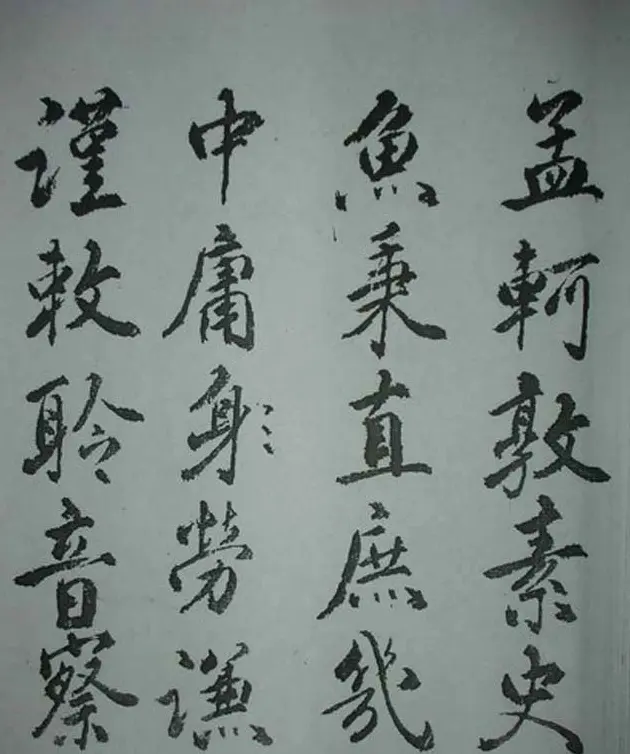 孟軻敦素史
魚秉直庶幾
中庸勞謙
謹敕聆音察